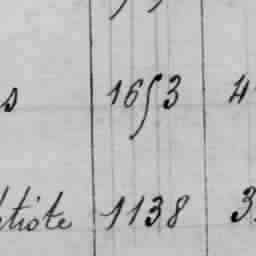 s 1653 4
tiote 1138 3